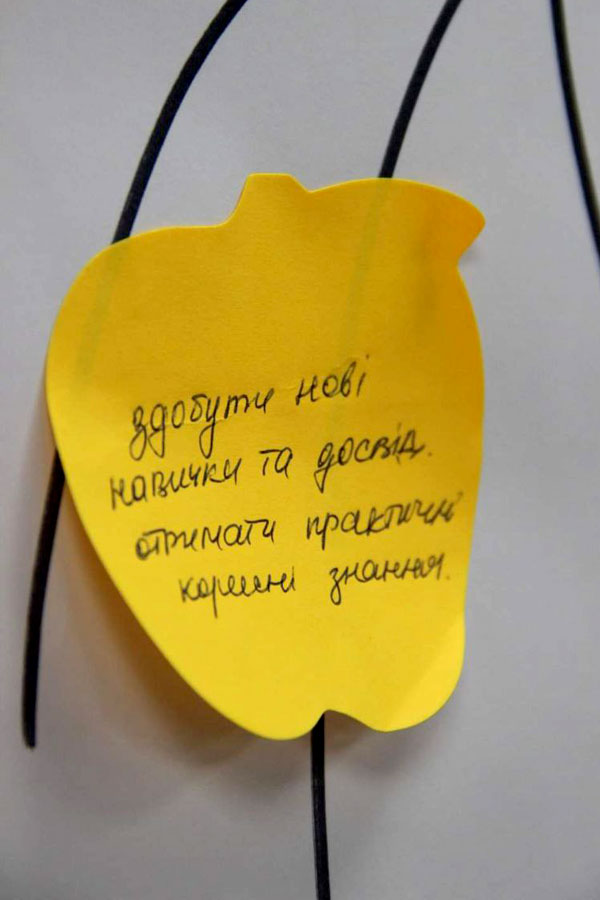 здобути нові
навички та досвід.
отримати практичні
корисні знання.